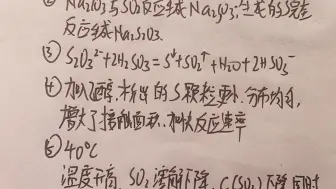 ② Na₂CO₃与SO₂反应生成Na₂SO₃;生成的S完全
反应生成Na₂S₂O₃.
③ S₂O₃²⁻+2H₂SO₃=S↓+SO₂↑+H₂O+2HSO₃⁻
④ 加入乙醇,析出的S颗粒更小、分布均匀,
增大了接触面积,加快反应速率
⑤ 40℃
温度升高,SO₂溶解度下降,C(SO₂)下降同时